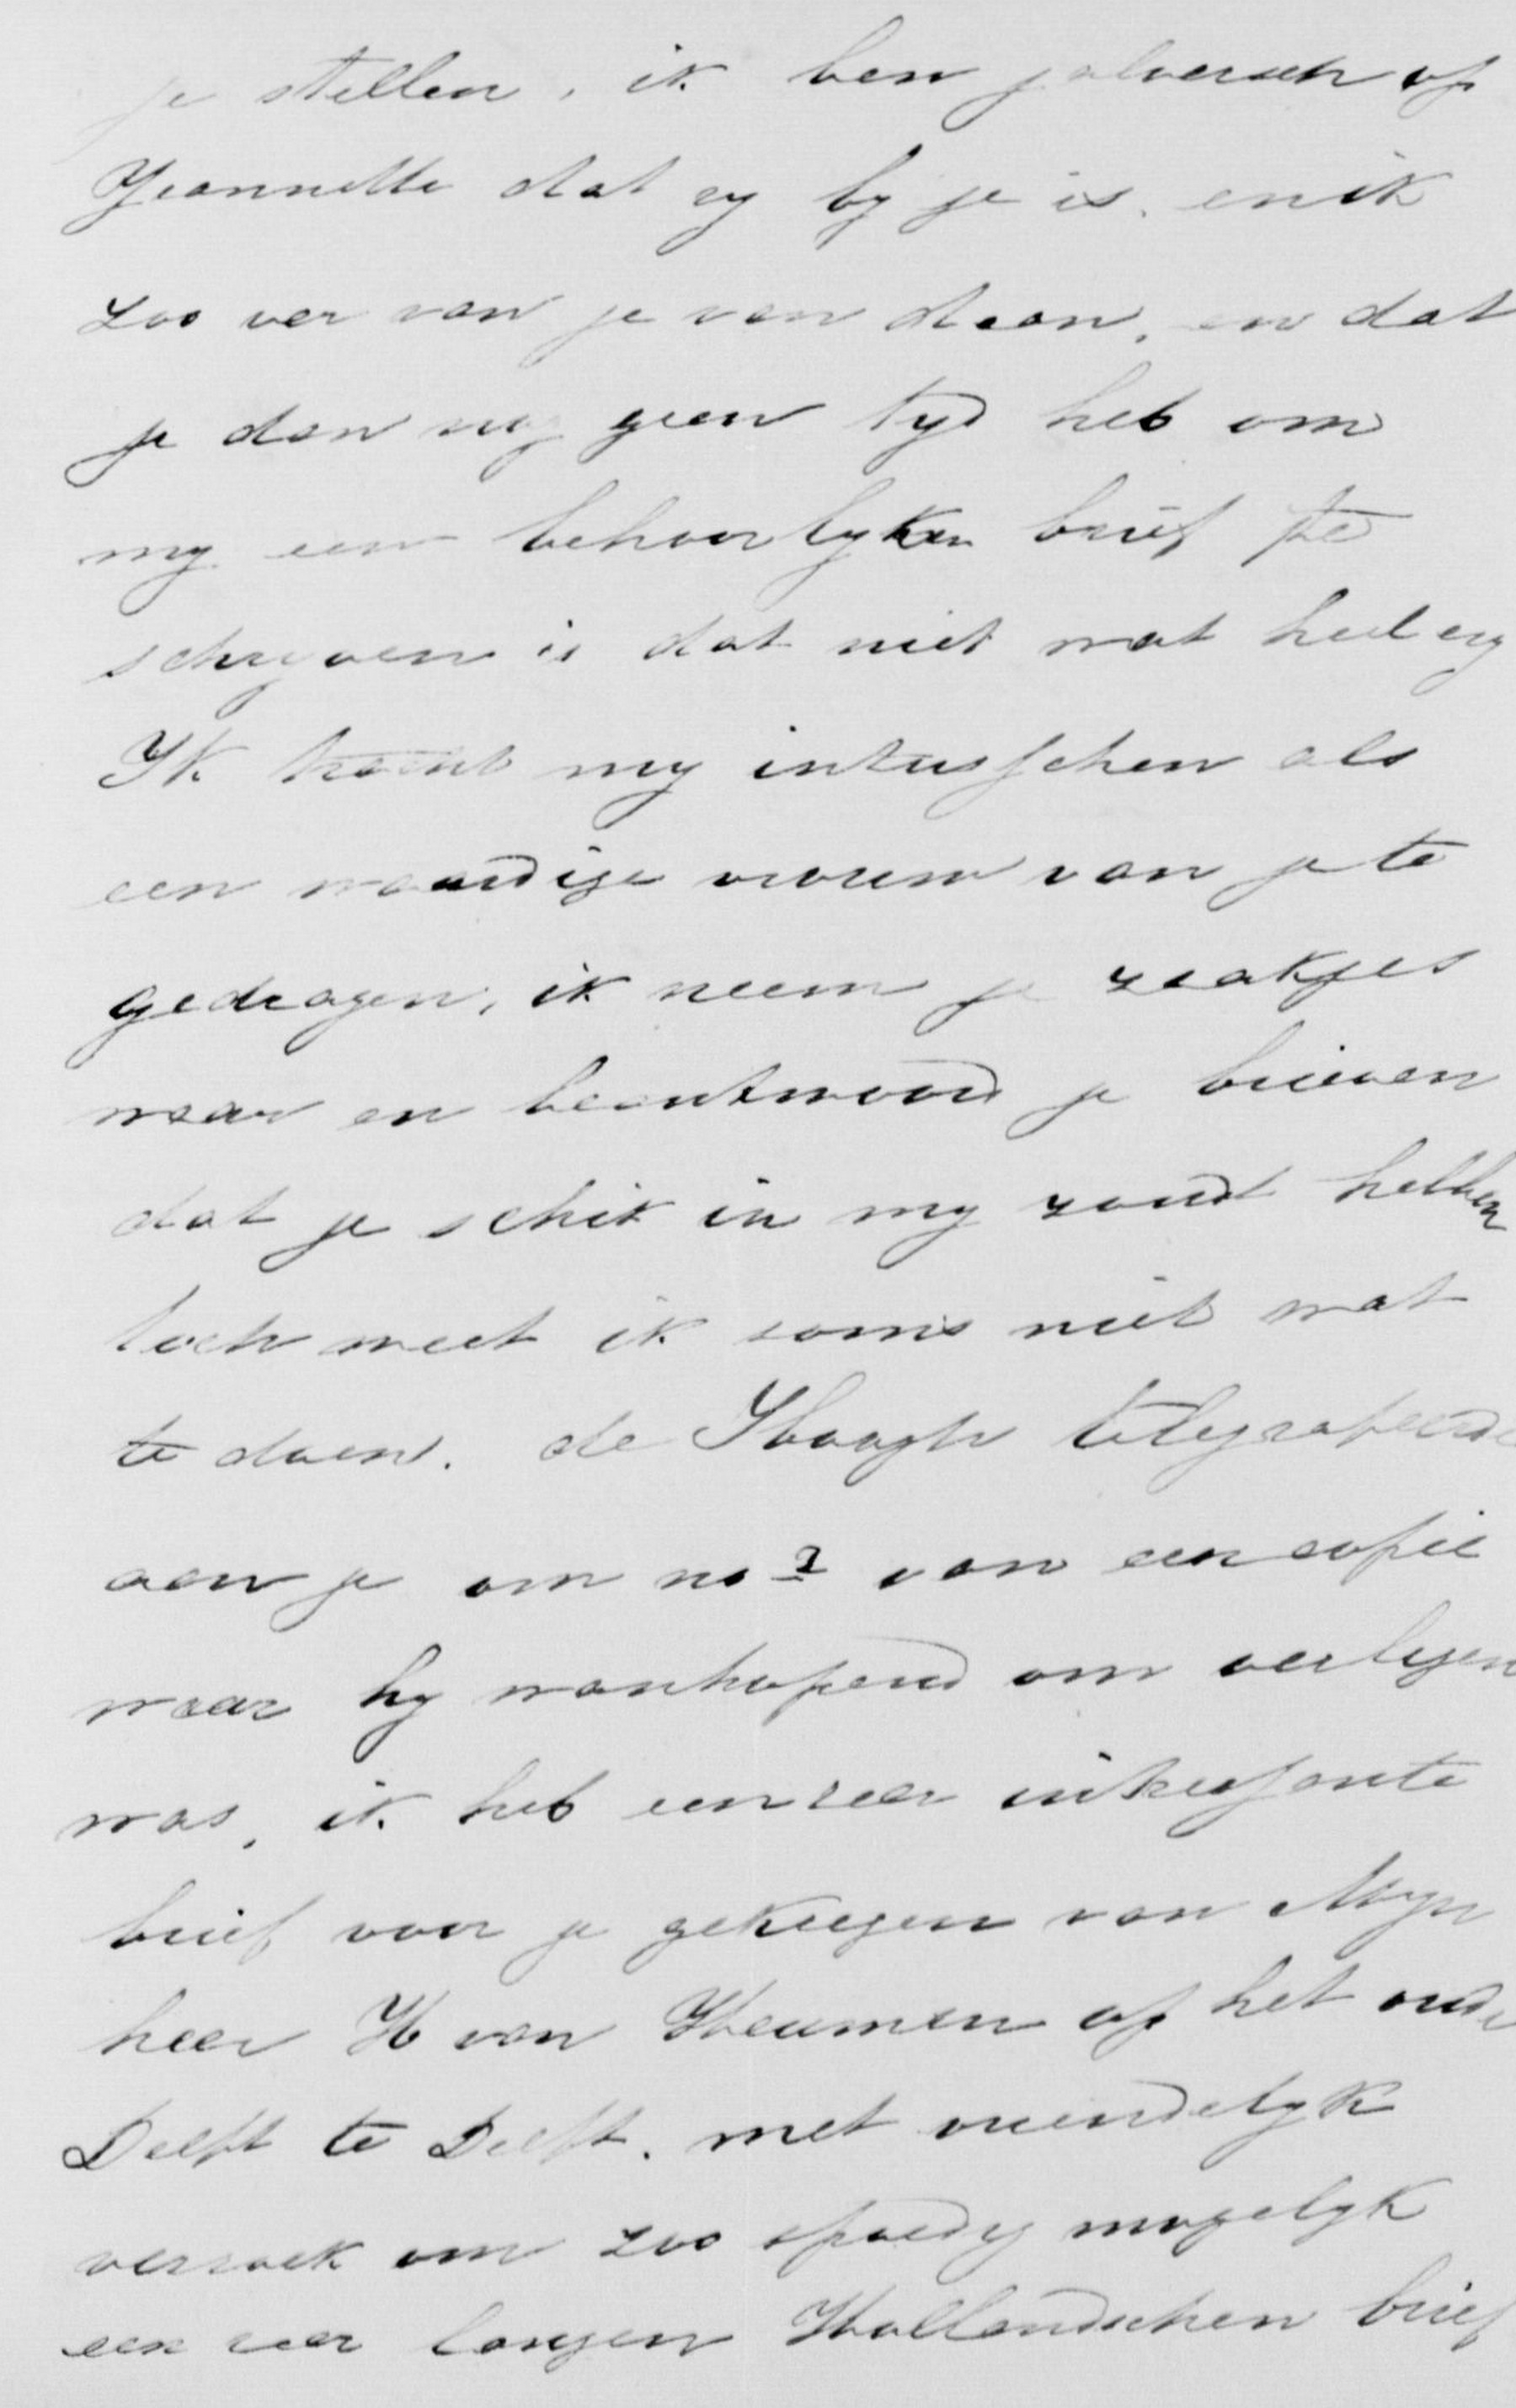 je stellen, ik ben jaloersch op
Jeannette dat zy by je is, en ik
zoo ver van je van daan, en dat
je dan nog geen tyd heb om
my een behoorlyken brief te
schryven is dat niet wat heel erg
Ik tracht my intusschen als
een waardige vrouw van je te
gedragen, ik neem je zaakjes
waar en beantwoord je brieven
dat je schik in my zoudt hebben
toch weet ik soms niet wat
te doen. de Haagh telegrafeerde
aan je om no 2 van een copie
waar hy wanhopend om verlegen
was, ik heb een zeer intressante
brief voor je gekregen van Myn
heer H van Heumen op het oude
Delft te Delft. met vriendelyk
verzoek om zoo spoedig mogelyk
een zeer langen Hollandschen brief